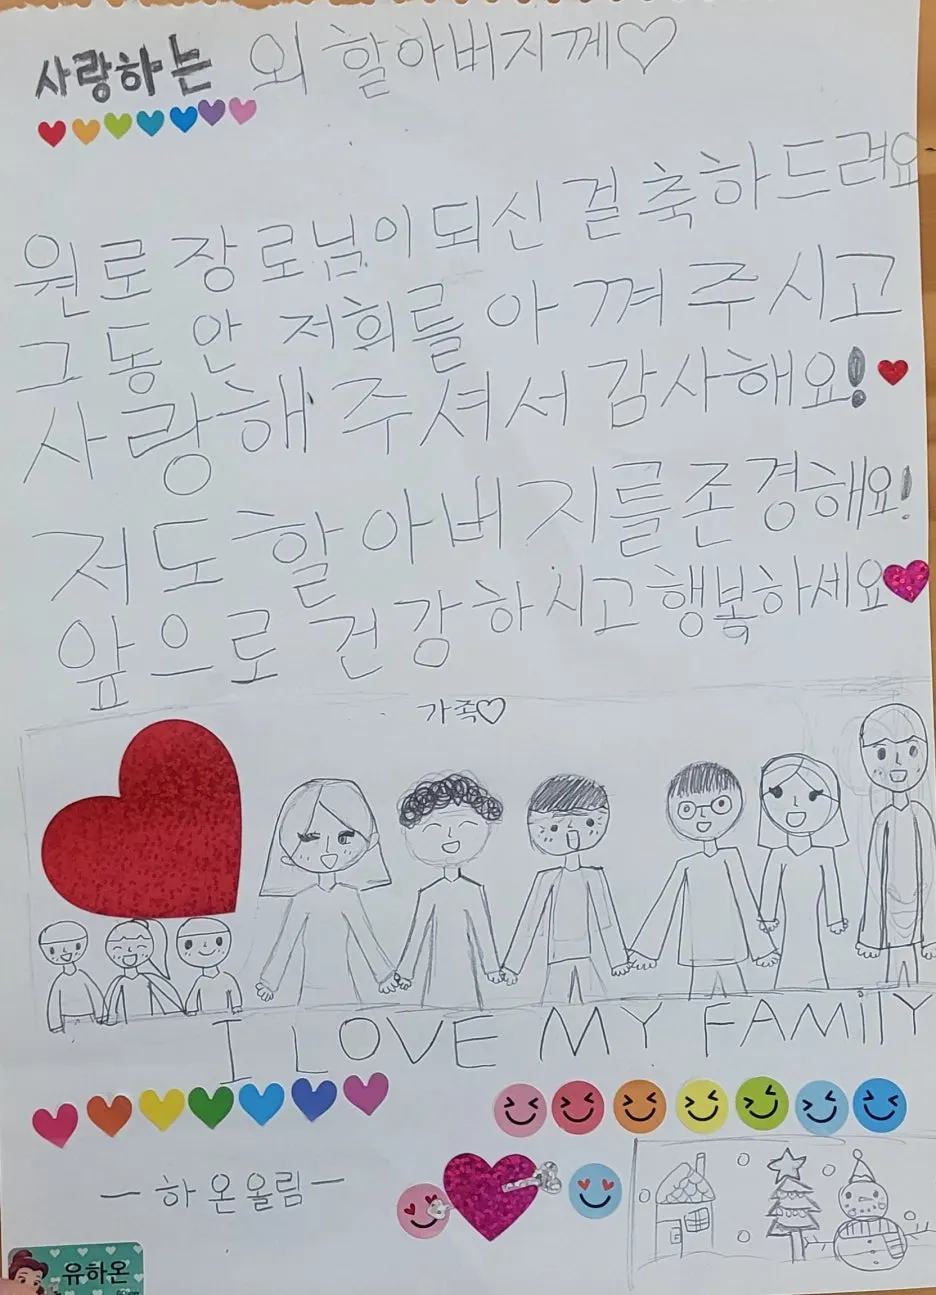 사랑하는 외 할아버지께♡
원로 장로님이 되신 걸 축하 드려요
그 동안 저희를 아껴 주시고
사랑해 주셔서 감사해요!
저도 할아버지를 존경해요!
앞으로 건강하시고 행복하세요
가족♡
I LOVE MY FAMILY
- 하온올림 -
유하온